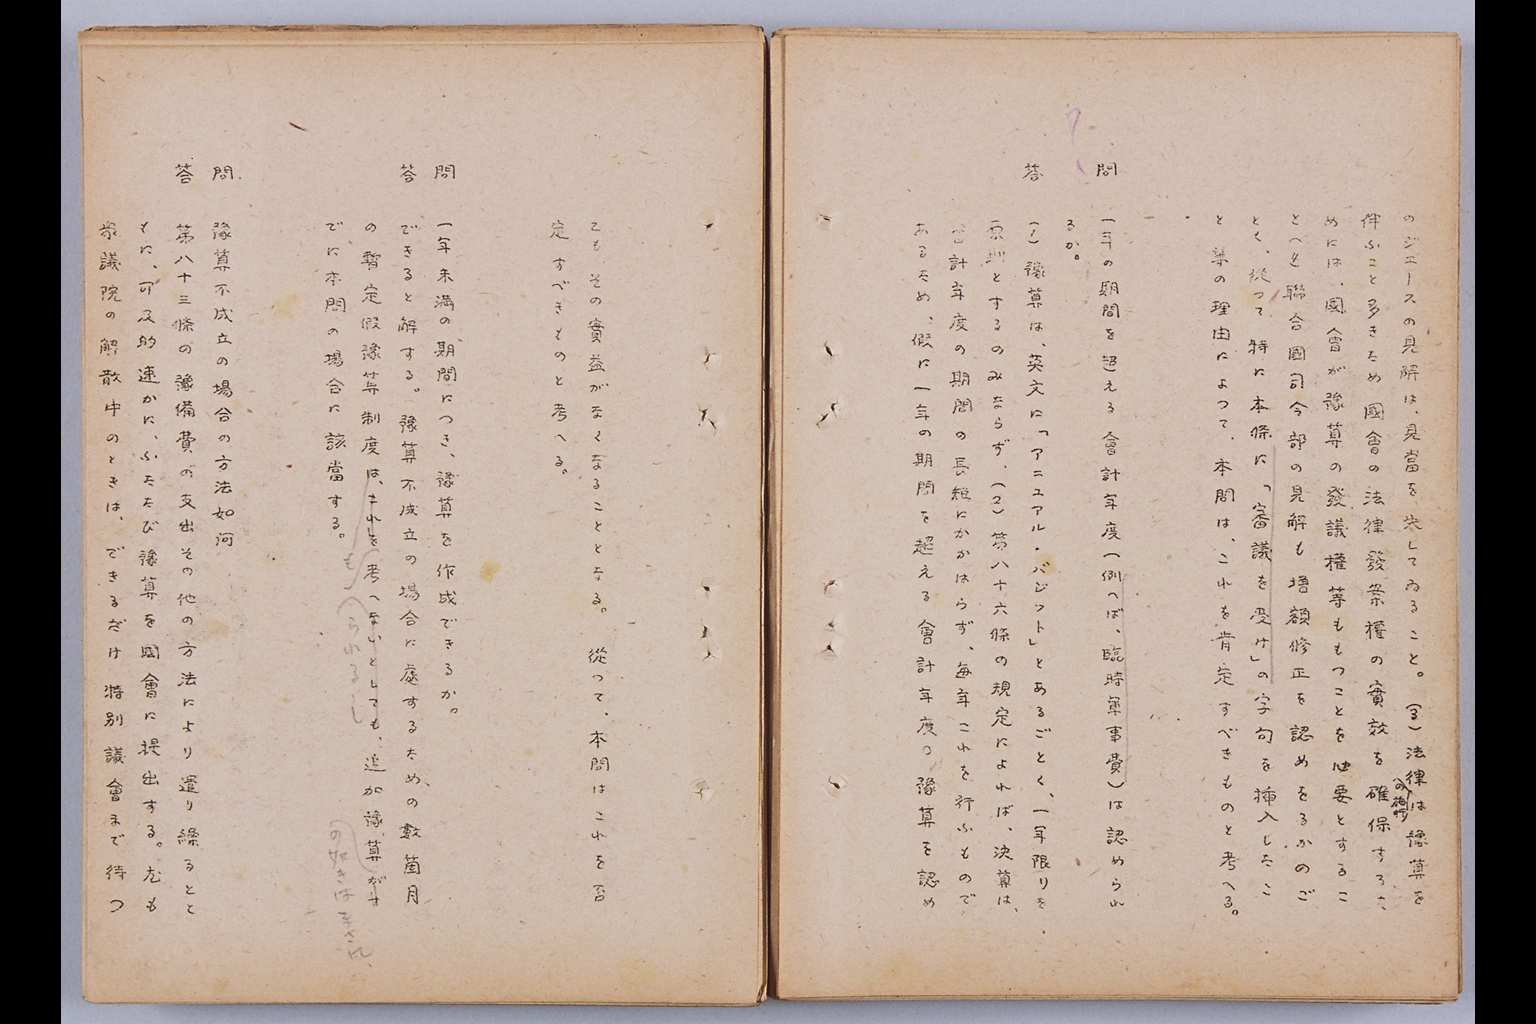 のジエースの見解は、見當を、失してゐること。(3)法律は豫算を
伴ふこと多きため國會の法律發案權の實效を確保するた
めには、國會が豫算の發議權等ももつことを必要とするこ
と(4)聯合國司令部の見解も増額修正を認めをるかのご
とく、從つて、特に本條に「審議を受け」の字句を挿入したこ
と等の理由によつて、本問は、これを肯定すべきものと考へる。
問 一年の期間を超える會計年度(例へば、臨時軍事費)は認められ
るか。
答 (1)豫算は、英文に「アニュアル・バジット」とあるごとく、一年限りを
原則とするのみならず、(2)第八十六條の規定によれば、決算は、
會計年度の期間の長短にかかはらず、毎年これを行ふもので
あるため、假に一年の期間を超える會計年度の豫算を認め
ても、その實益がなくなることとなる。從つて、本問はこれを否
定すべきものと考へる。
問 一年未満の期間につき、豫算を作成できるか。
答 できると解する。豫算不成立の場合に處するための數箇月
の暫定假豫算制度は、これを考へないとしても、追加豫算がす
も
られる
の如きは
でに本問の場合に該當する。
問 豫算不成立の場合の方法如何
答 第八十三條の豫備費の支出その他の方法により遣り繰るとと
もに、可及的速かに、ふたたび豫算を國會に提出する。尤も
衆議院の解散中のときは、できるだけ特別議會まで待つ